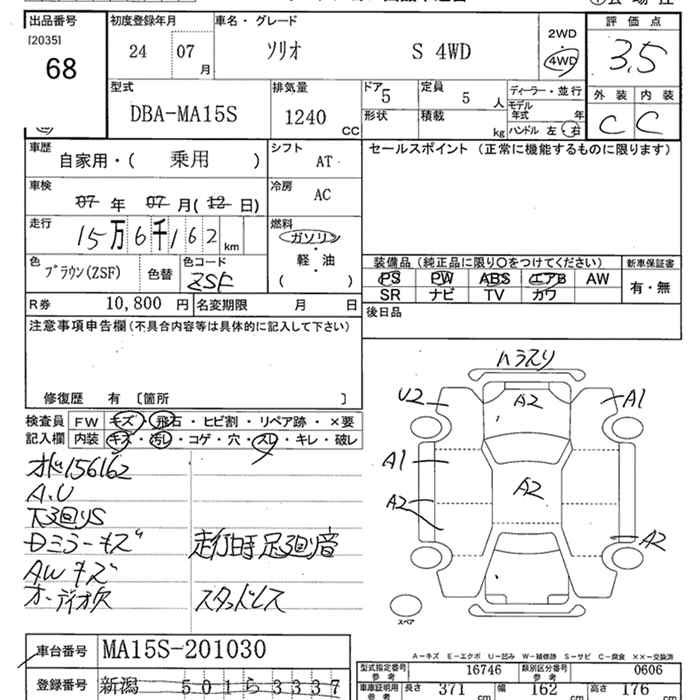 出品番号 初度登録年月 車名・グレード 評価点
[2035]
68 24 07 月 ソリオ S 4WD 2WD 4WD 3.5
型式 排気量 ドア 定員 ディーラー・並行 外装 内装
DBA-MA15S 1240 CC 5 5 人 モデル年式 年
形状 積載 kg ハンドル 左・右 C C
車歴 自家用・( 乗用 ) シフト AT セールスポイント (正常に機能するものに限ります)
車検 07 年 07 月(12 日) 冷房 AC
走行 15万6千162 km 燃料 ガソリン
軽・油
( )
色 ブラウン(ZSF) 色替 色コード ZSF
装備品 (純正品に限り○をつけてください) 新車保証書
PS PW ABS エアB AW 有・無
SR ナビ TV カワ
R券 10,800 円 名変期限 月 日
後日品
注意事項申告欄(不具合内容等は具体的に記入して下さい)
修復歴 有 [箇所 ]
検査員記入欄 FW キズ・飛石・ヒビ割・リペア跡・×要
内装 キズ・汚れ・コゲ・穴・スレ・キレ・破レ
オド156162
A.U
下廻りS
Dミラーキズ 走行時足廻り音
AWキズ
オーディオ欠 スタッドレス
ハラスリ
U2 A2 A1
A1
A2 A2
A2
スペア
A-キズ E-エクボ U-凹み W-補修跡 S-サビ C-腐食 ××-交換済
車台番号 MA15S-201030
型式指定番号 参考 16746 類別区分番号 参考 0606
登録番号 新潟 501ら3337
車庫証明用 参考 長さ 371 cm 幅 162 cm 高さ 176 cm